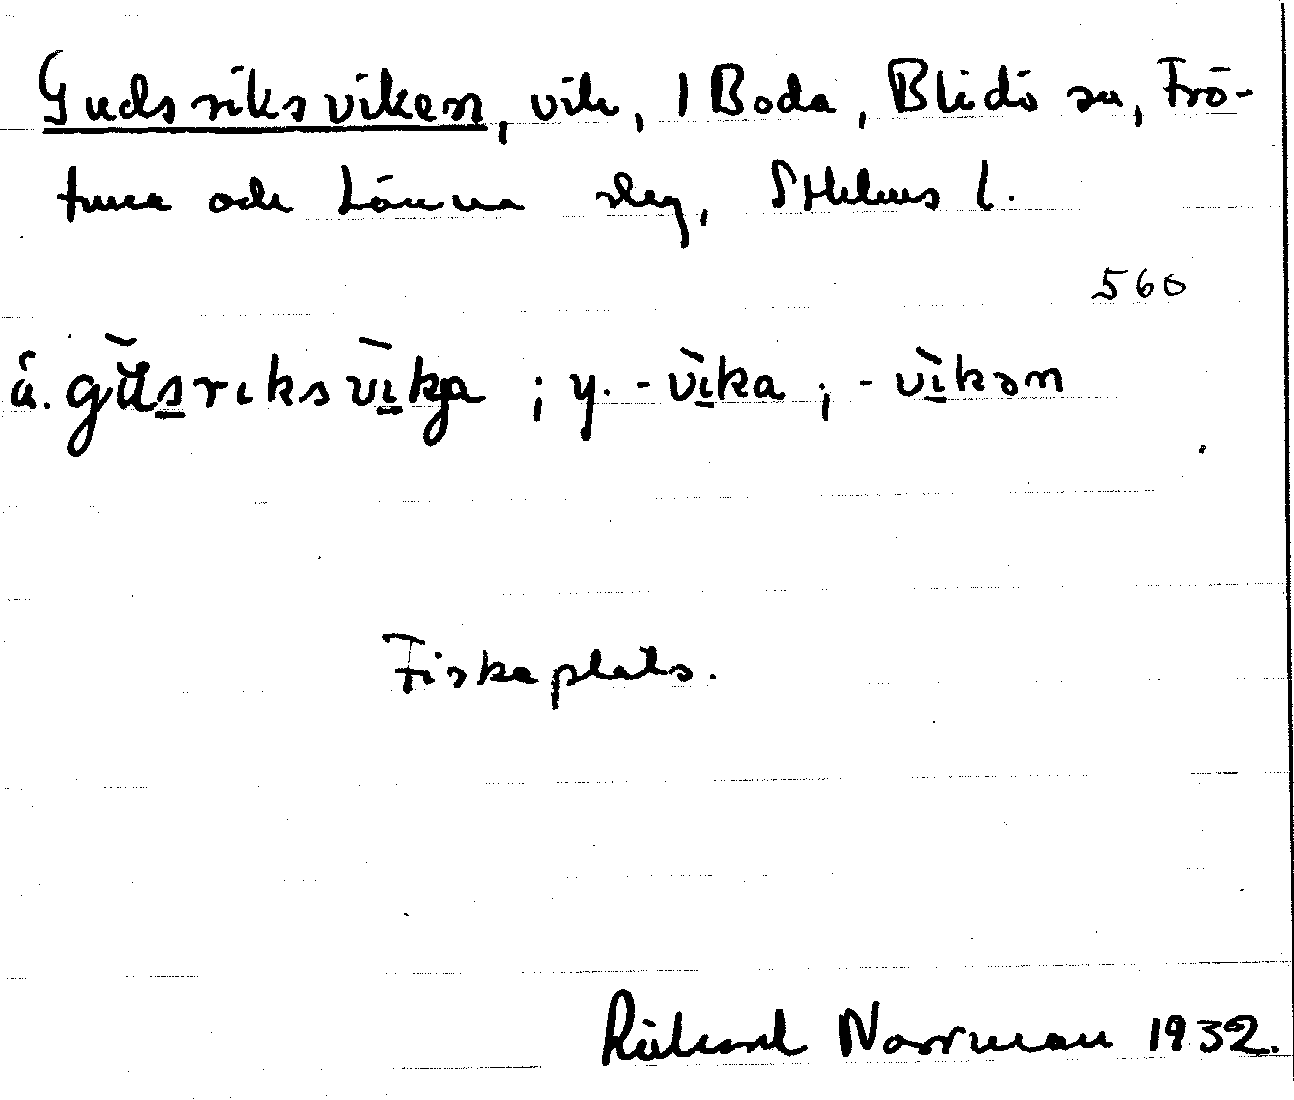 Gudsriksviken, vik, 1 Boda, Blidö sn, Frö-
tuna och Länna slg, Sthlms l.
560
ä. gu̇dsriksvikja ; y. -vika ; -vikən
Fiskeplats.
Rickard Norrman 1932.